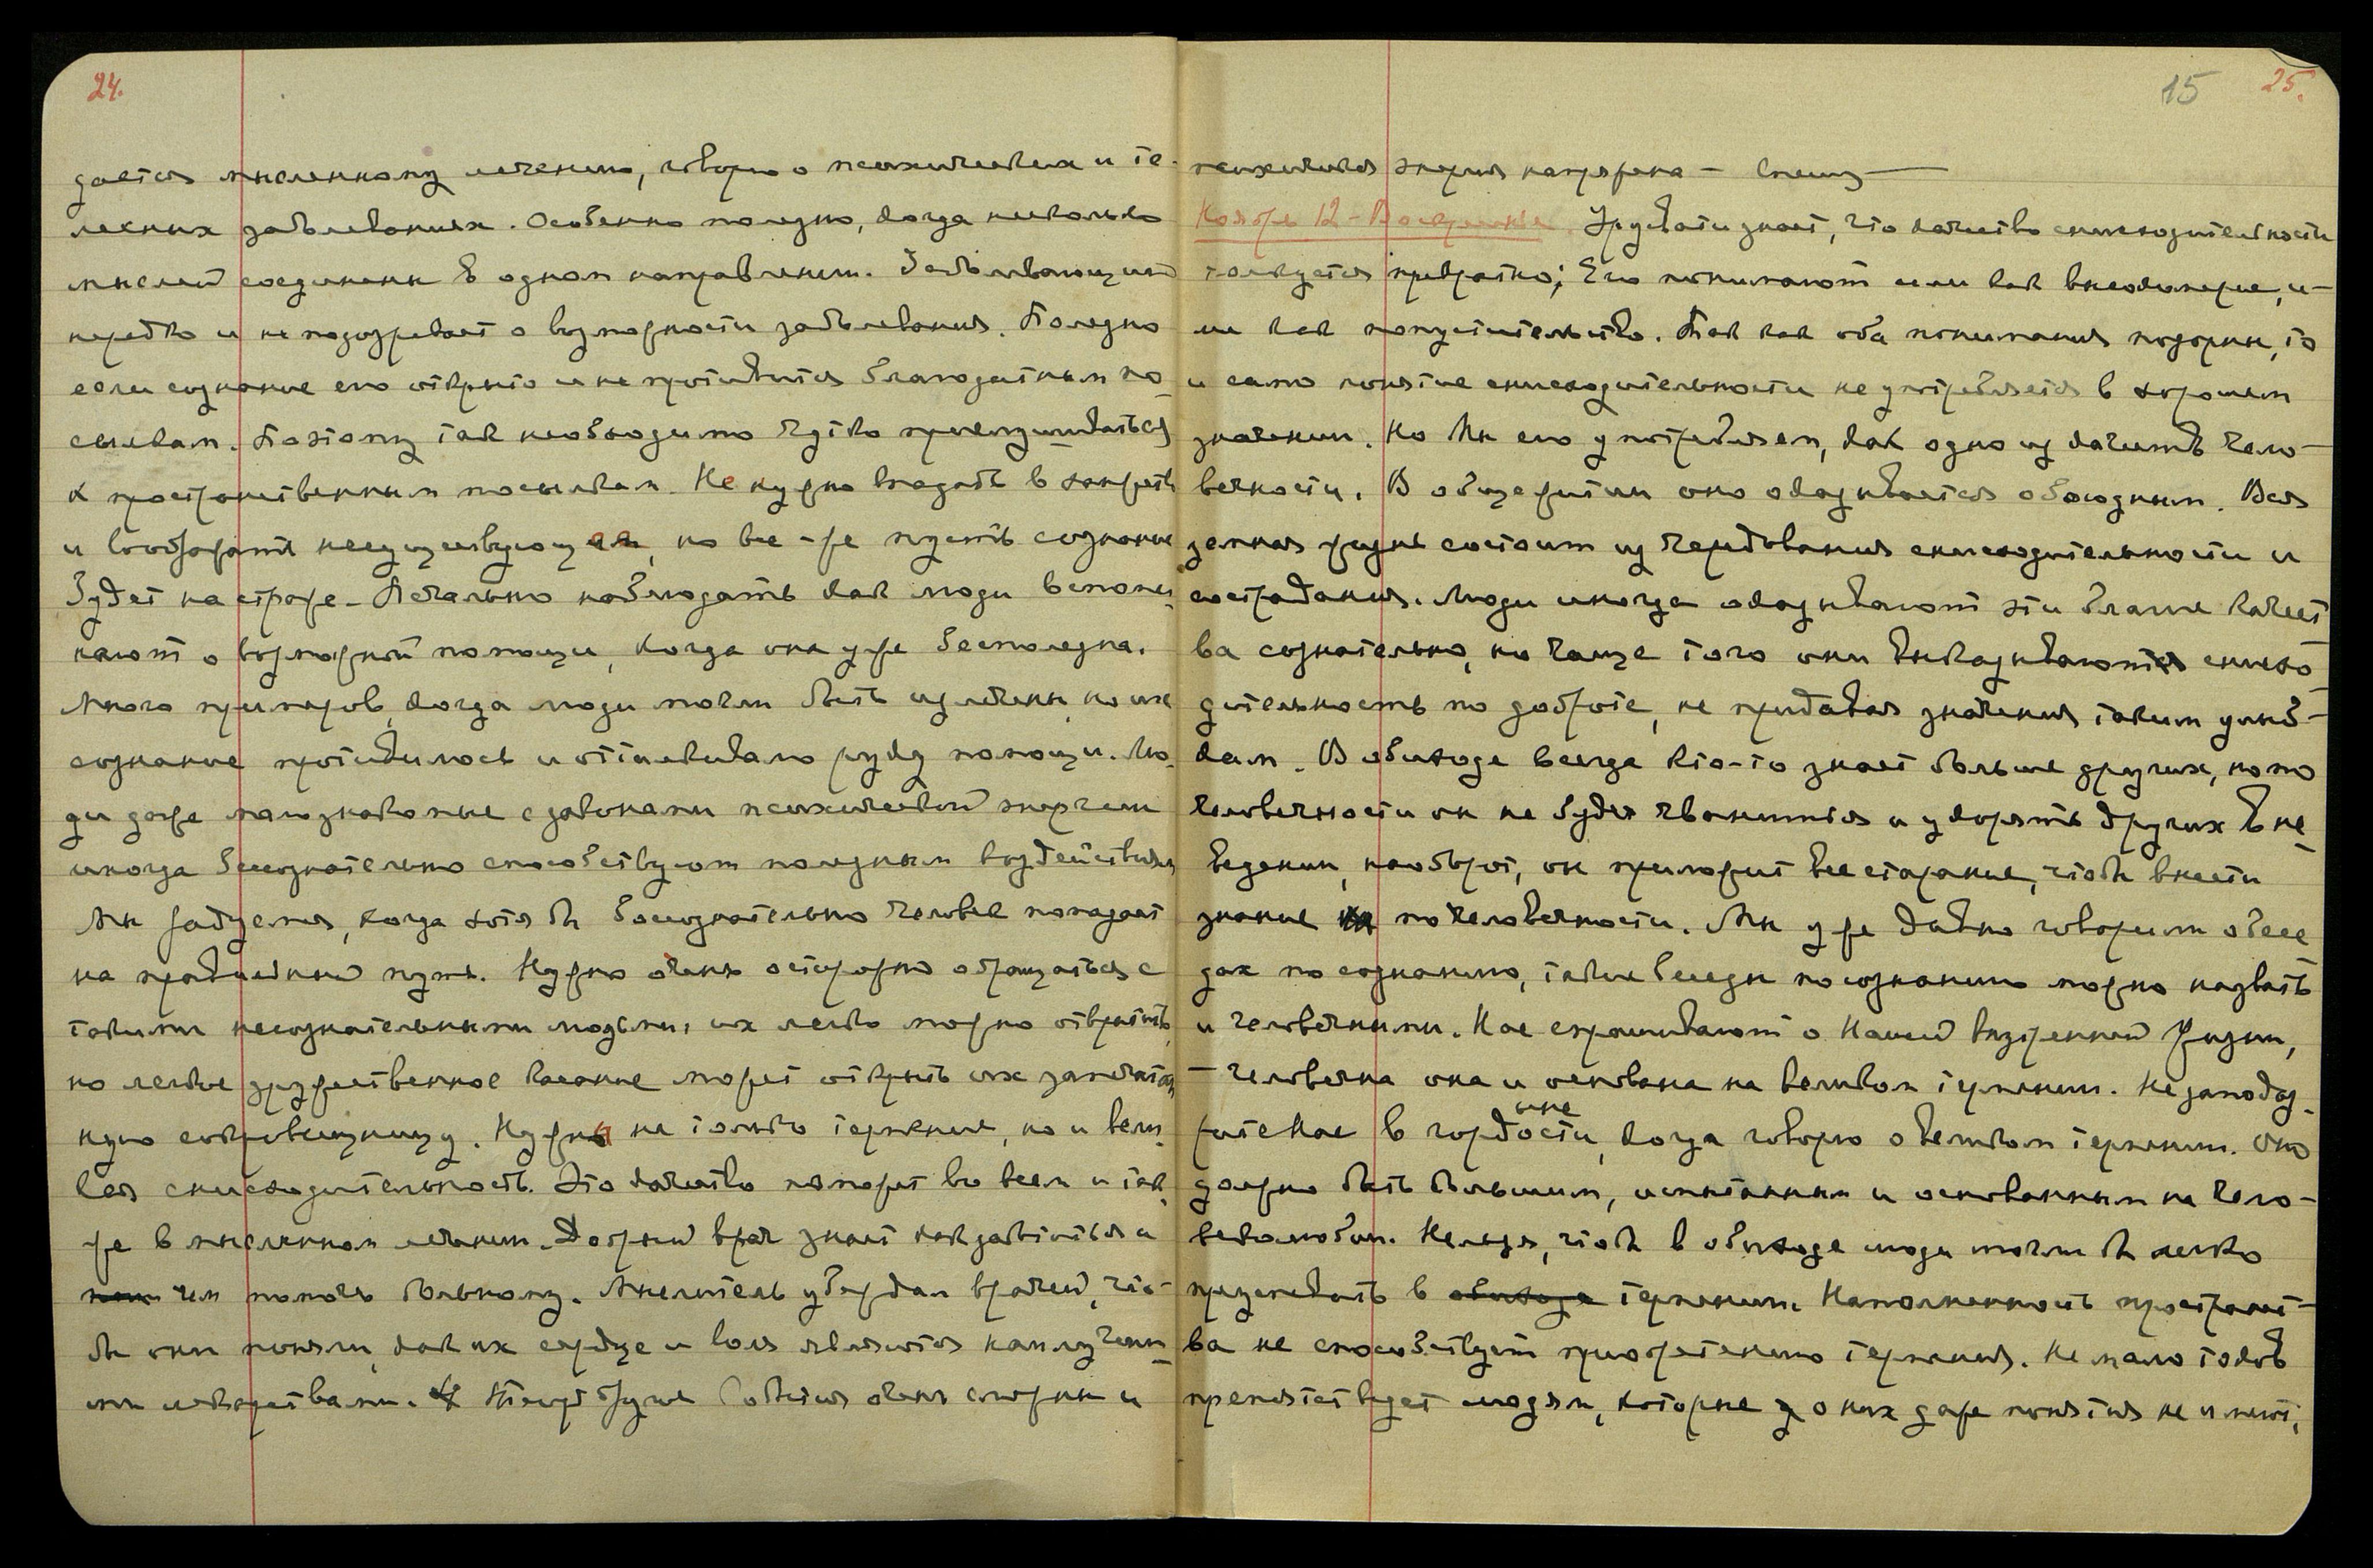 24.
дается мысленному лечению, говорю о психических и те-
лесных заболеваниях. Особенно полезно, когда несколько
мыслей соединены в одном направлении. Заболевающий
нередко и не подозревает о возможности заболевания. Полезно
если сознание его открыто и не противится благодатным по-
сылкам. Поэтому так необходимо чутко прислушиваться
к пространственным посылкам. Не нужно впадать в ханжеств
и воображать несуществующее, но все-же пусть сознание
будет на страже. Печально наблюдать как люди вспоми-
нают о возможной помощи, когда она уже бесполезна.
Много примеров, когда люди могли быть излечены, но их
сознание противилось и отталкивало руку помощи. Лю-
ди даже малознакомые с законами психической энергии
иногда бессознательно способствуют полезным воздействиям
Мы радуемся, когда хотя бы бессознательно человек попадает
на правильный путь. Нужно очень осторожно обращаться с
такими несознательными людьми, их легко можно отвратить,
но легкое дружественное касание может открыть их запечатан-
ную сокровищницу. Нужно не только терпение, но и вели-
кая снисходительность. Это качество поможет во всем и так-
же в мысленном лечении. Добрый врач знает как подойти и
чем помочь больному. Мыслитель убеждал врачей, что-
бы они поняли, как их сердце и воля являются наилучши-
ми лекарствами. Битва очень сложны и
15 25.
психическая энергия напряжена — Спешу —
Ноябрь 12 - Воскресенье. Урусвати знает, что качество снисходительности
толкуется превратно; Его понимают или как высокомерие, и-
ли как попустительство. Так как оба понимания позорны, то
и само понятие снисходительности не употребляется в хорошем
значении. Но Мы его употребляем, как одно из качеств чело-
вечности. В общежитии оно оказывается обоюдным. Вся
земная жизнь состоит из чередования снисходительности и
сострадания. Люди иногда оказывают эти благие качест
ва сознательно, но чаще того они выказывают снисхо-
дительность по доброте, не придавая значения таким улыб-
кам. В обиходе всегда кто-то знает больше других, но по
человечности он не будет чваниться и укорять других в не-
ведении, наоборот, он приложит все старание, чтобы внести
знание по человечности. Мы уже давно говорим о бесе
дах по сознанию, такие беседы по сознанию можно назвать
и человечными. Нас спрашивают о Нашей внутренней жизни,
- человечна она и основана на великом терпении. Не заподоз-
рите Нас в гордости, когда говорю о великом терпении. Оно
должно быть большим, испытанным и основанным на чело-
веколюбии. Нельзя, чтобы в обиходе люди могли бы легко
преуспевать в обиходе терпении. Наполненность пространст-
ва не способствует приобретению терпения. Не мало токов
препятствует людям, которые о них даже понятия не имеют,